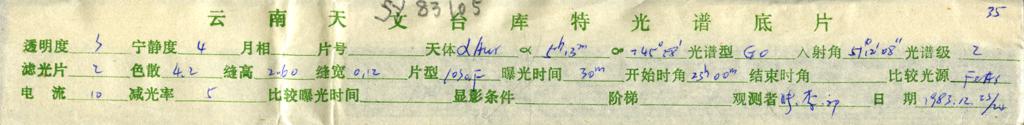 SY83105
云南天文台库特光谱底片 35
透明度 5 宁静度 4 月相 片号 天体 α Aur α 5ʰ13ᵐ δ +45°58′ 光谱型 G0 入射角 51°12′08″ 光谱级 2
滤光片 2 色散 4.2 缝高 2.60 缝宽 0.12 片型 103aF 曝光时间 30ᵐ 开始时角 23ʰ00ᵐ 结束时角 比较光源 FeAr
电流 10 减光率 5 比较曝光时间 显影条件 阶梯 观测者 李 日期 1983.12.23/24